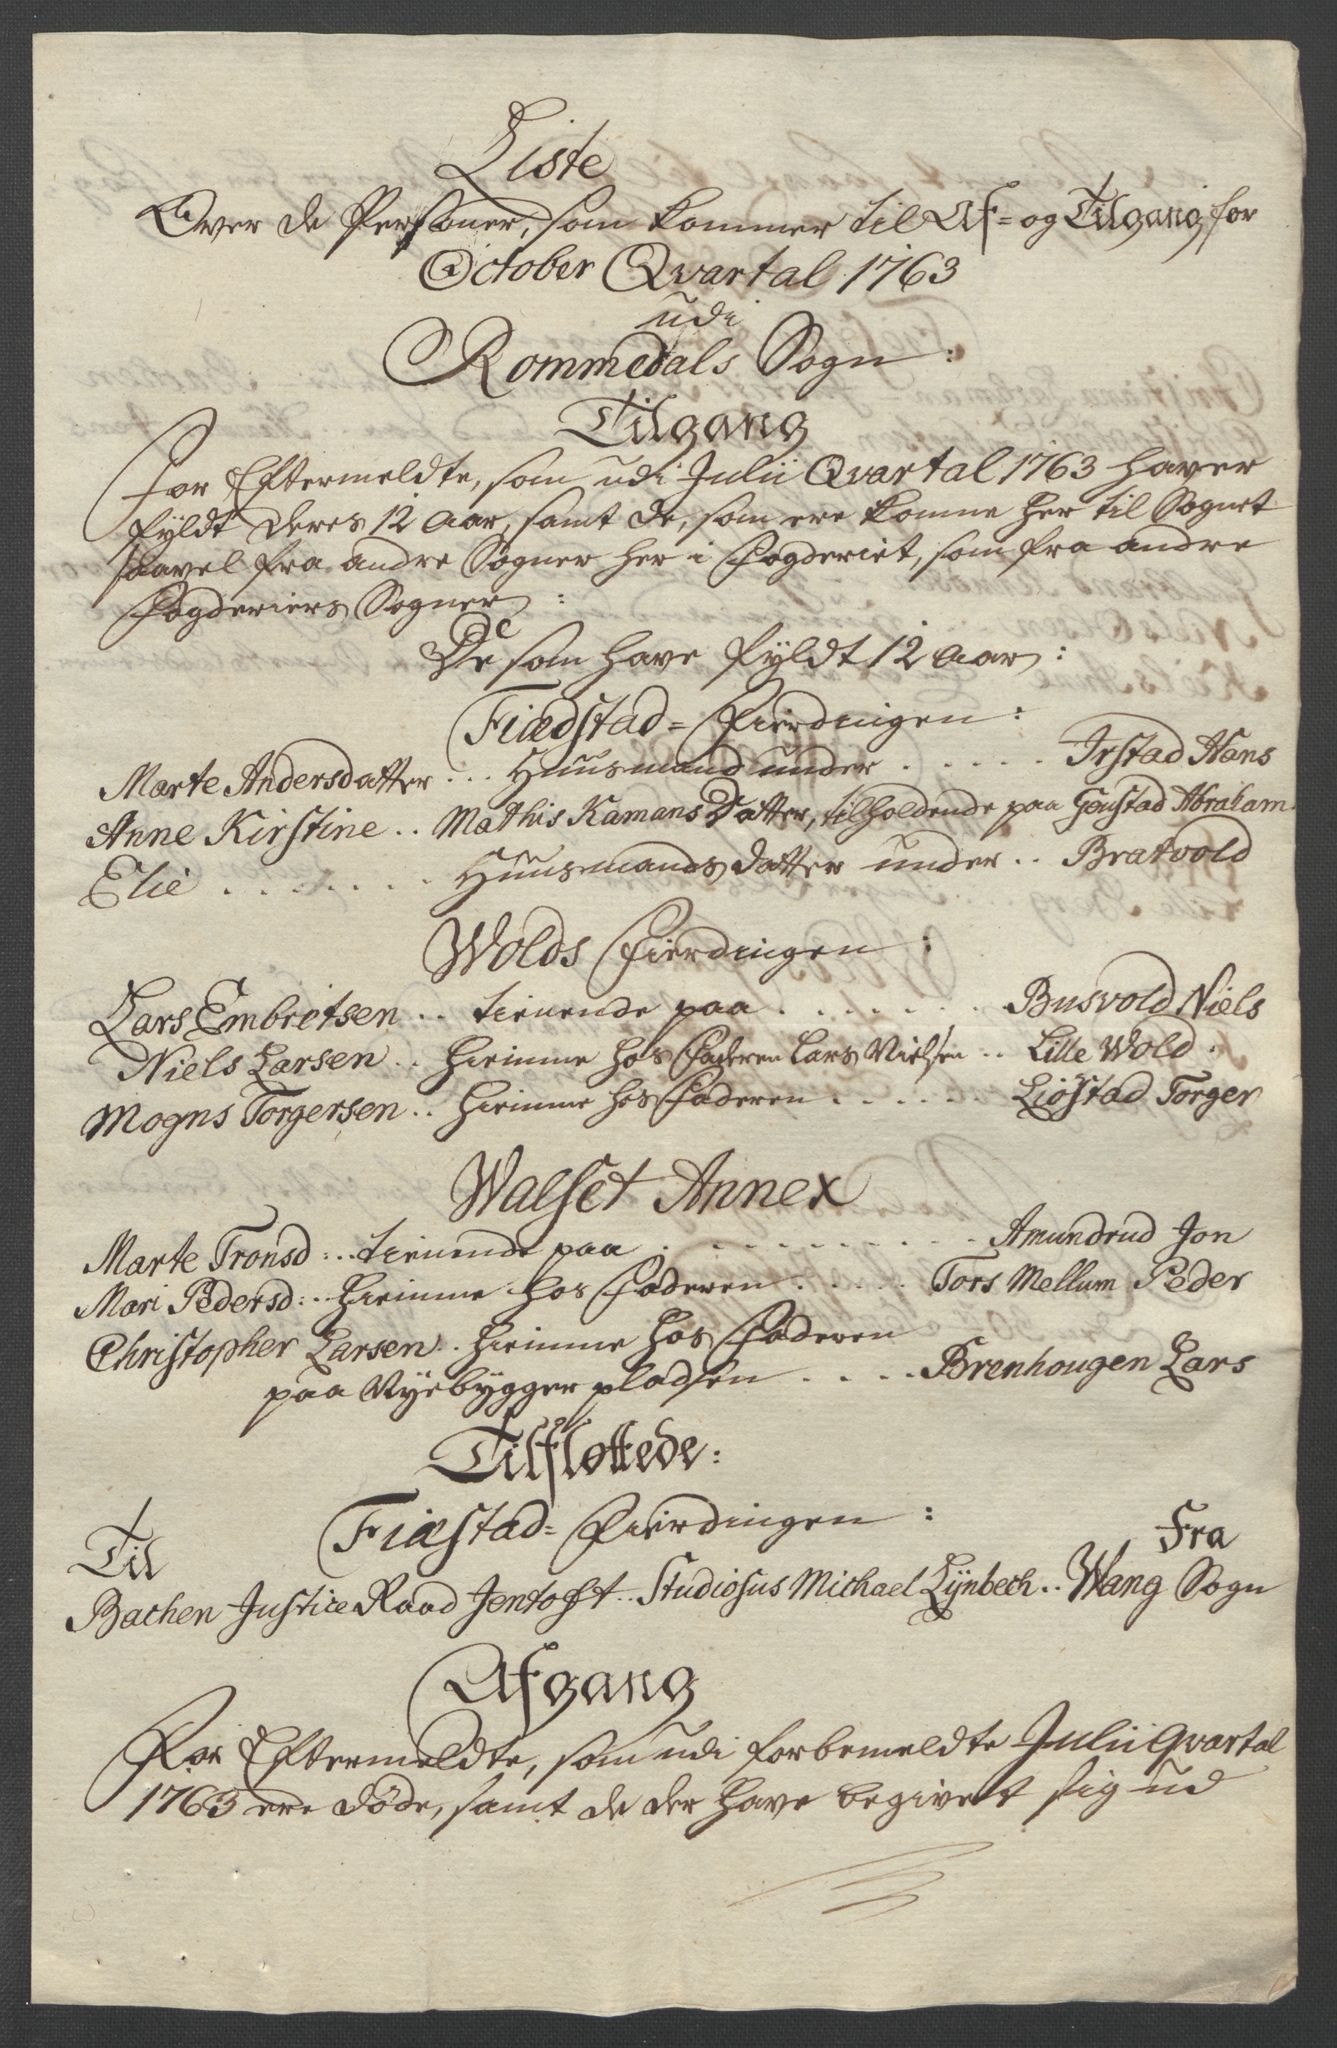 Liste
Over de Personer, som kommer til Af= og Tilgang for
October Qvartal 1763
udi
Rommedals Sogn:
Tilgang
For Eftermeldte, som udi Julii Qvartal 1763 haver
fyldt deres 12 Aar, samt de, som ere komne her til Sognet
saavel fra andre Sogner her i Fogderiet, som fra andre
Fogderiers Sogner:
De som have fyldt 12 Aar:
Fiædstad= Fierdingen:
Marte Andersdatter... Huusmand under..... Irstad Hans
Anne Kirstine.. Mathis Kamans Datter, tilholdende paa Genstad Abraham
Elie........ Huusmands datter under.. Bratvold
Wolds Fierdingen:
Lars Embretsen.. tienende paa....... Busvold Niels
Niels Larsen.. hiemme hos Faderen Lars Nielsen.. Lille Wold.
Mogns Torgersen.. hiemme hos Faderen...... Liøstad Torger
Walset Annex
Marte Tronsd:.. tienende paa.......... Amundrud Jon
Mari Pedersd:.. hiemme hos Faderen..... Tors Mellum Peder
Christopher Larsen.. hiemme hos Faderen
paa Nyebygger pladsen.... Brenhougen Lars
Tilfløttede:
Fiæstad= Fierdingen:
Til Fra
Bachen Justice Raad Jentoft.. Studiosus Michael Lÿnbech.. Wang Sogn
Afgang
For Eftermeldte, som udi forbemeldte Julii Qvartal
1763 ere døde, samt de der have begivet sig ud